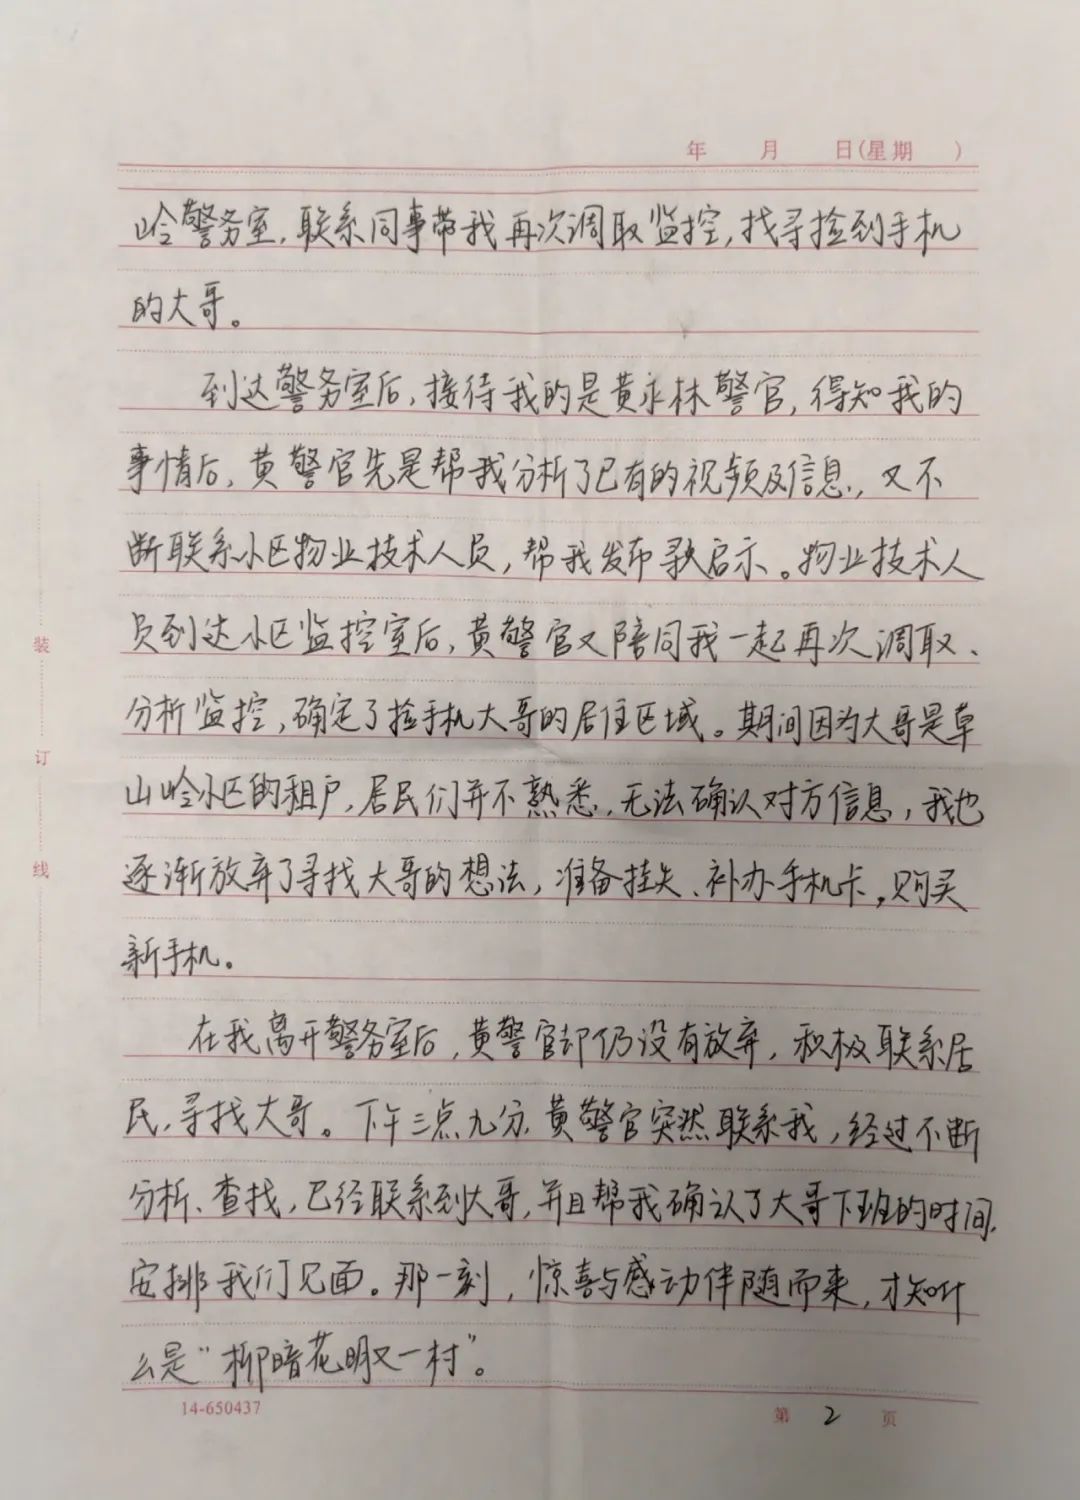 年 月 日(星期 )
岭警务室,联系同事带我再次调取监控,找寻捡到手机
的大哥。
到达警务室后,接待我的是黄永林警官,得知我的
事情后,黄警官先是帮我分析了已有的视频及信息,又不
断联系小区物业技术人员,帮我发布寻启示。物业技术人
员到达小区监控室后,黄警官又陪同我一起再次调取、
分析监控,确定了捡手机大哥的居住区域。期间因为大哥是草
山岭小区的租户,居民们并不熟悉,无法确认对方信息,我也
逐渐放弃了寻找大哥的想法,准备挂失、补办手机卡,购买
新手机。
在我离开警务室后,黄警官却仍没有放弃,积极联系居
民,寻找大哥。下午三点九分,黄警官突然联系我,经过不断
分析、查找,已经联系到大哥,并且帮我确认了大哥下班的时间,
安排我们见面。那一刻,惊喜与感动伴随而来,才知什
么是“柳暗花明又一村”。
装
订
线
14-650437
第 2 页